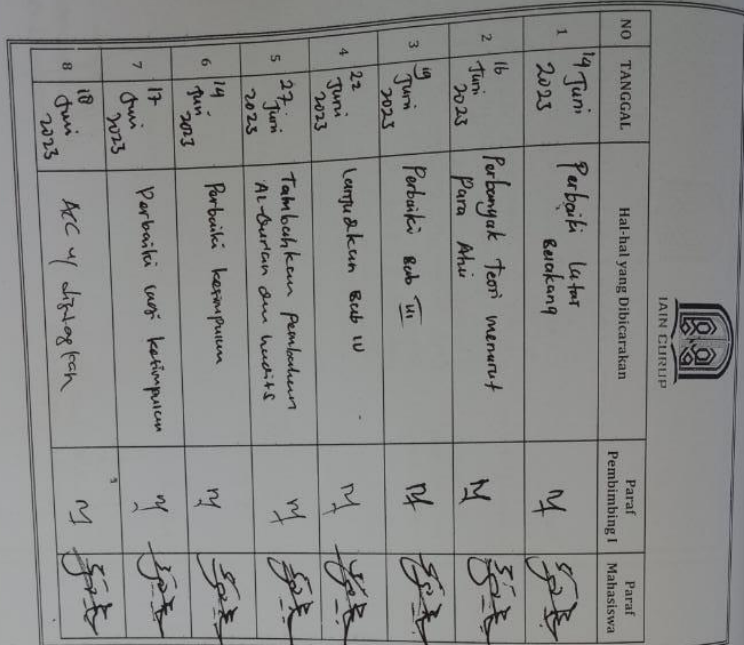 IAIN CURUP
NO TANGGAL Hal-hal yang Dibicarakan Paraf Pembimbing I Paraf Mahasiswa
1 14 Juni 2023 Perbaiki latar Belakang
2 16 Juni 2023 Perbanyak teori menurut Para Ahli
3 19 Juni 2023 Perbaiki Bab III
4 22 Juni 2023 Lanjutkan Bab IV
5 27 Juni 2023 Tambahkan Pembahasan Al-Quran dan hadits
6 14 Juni 2023 Perbaiki kesimpulan
7 17 Juni 2023 Perbaiki lagi kesimpulan
8 18 Juni 2023 ACC u/